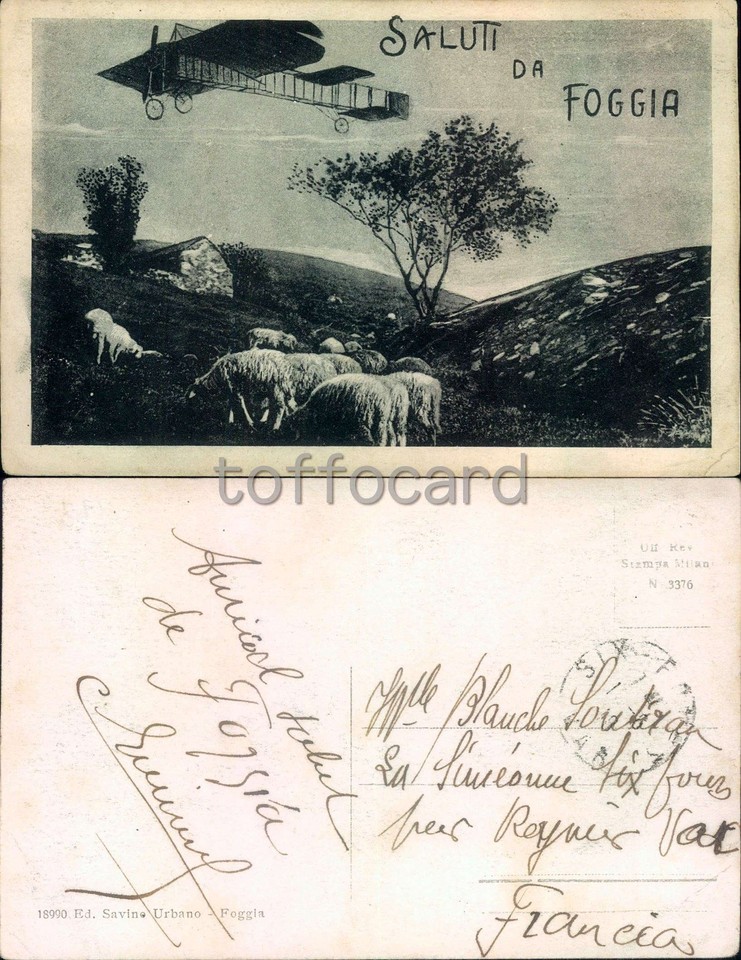 SALUTI
DA
FOGGIA
toffocard
Uff Rev
Stampa Milan
N 3376
Amical salut
de Foggia
Mlle Blanche
La Siméonne Six fours
par Reynier Var
Francia
18990 Ed. Savino Urbano - Foggia